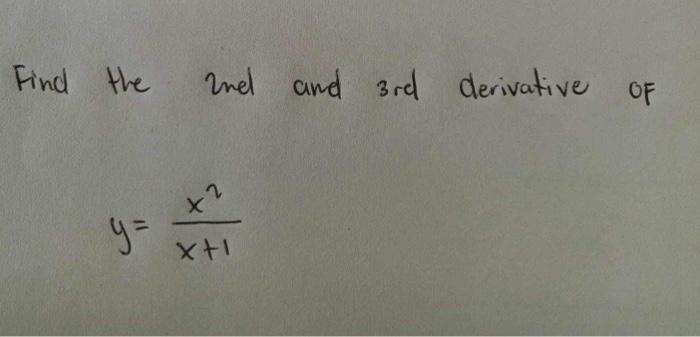 Find the 2nd and 3rd derivative OF
y = x²/x+1